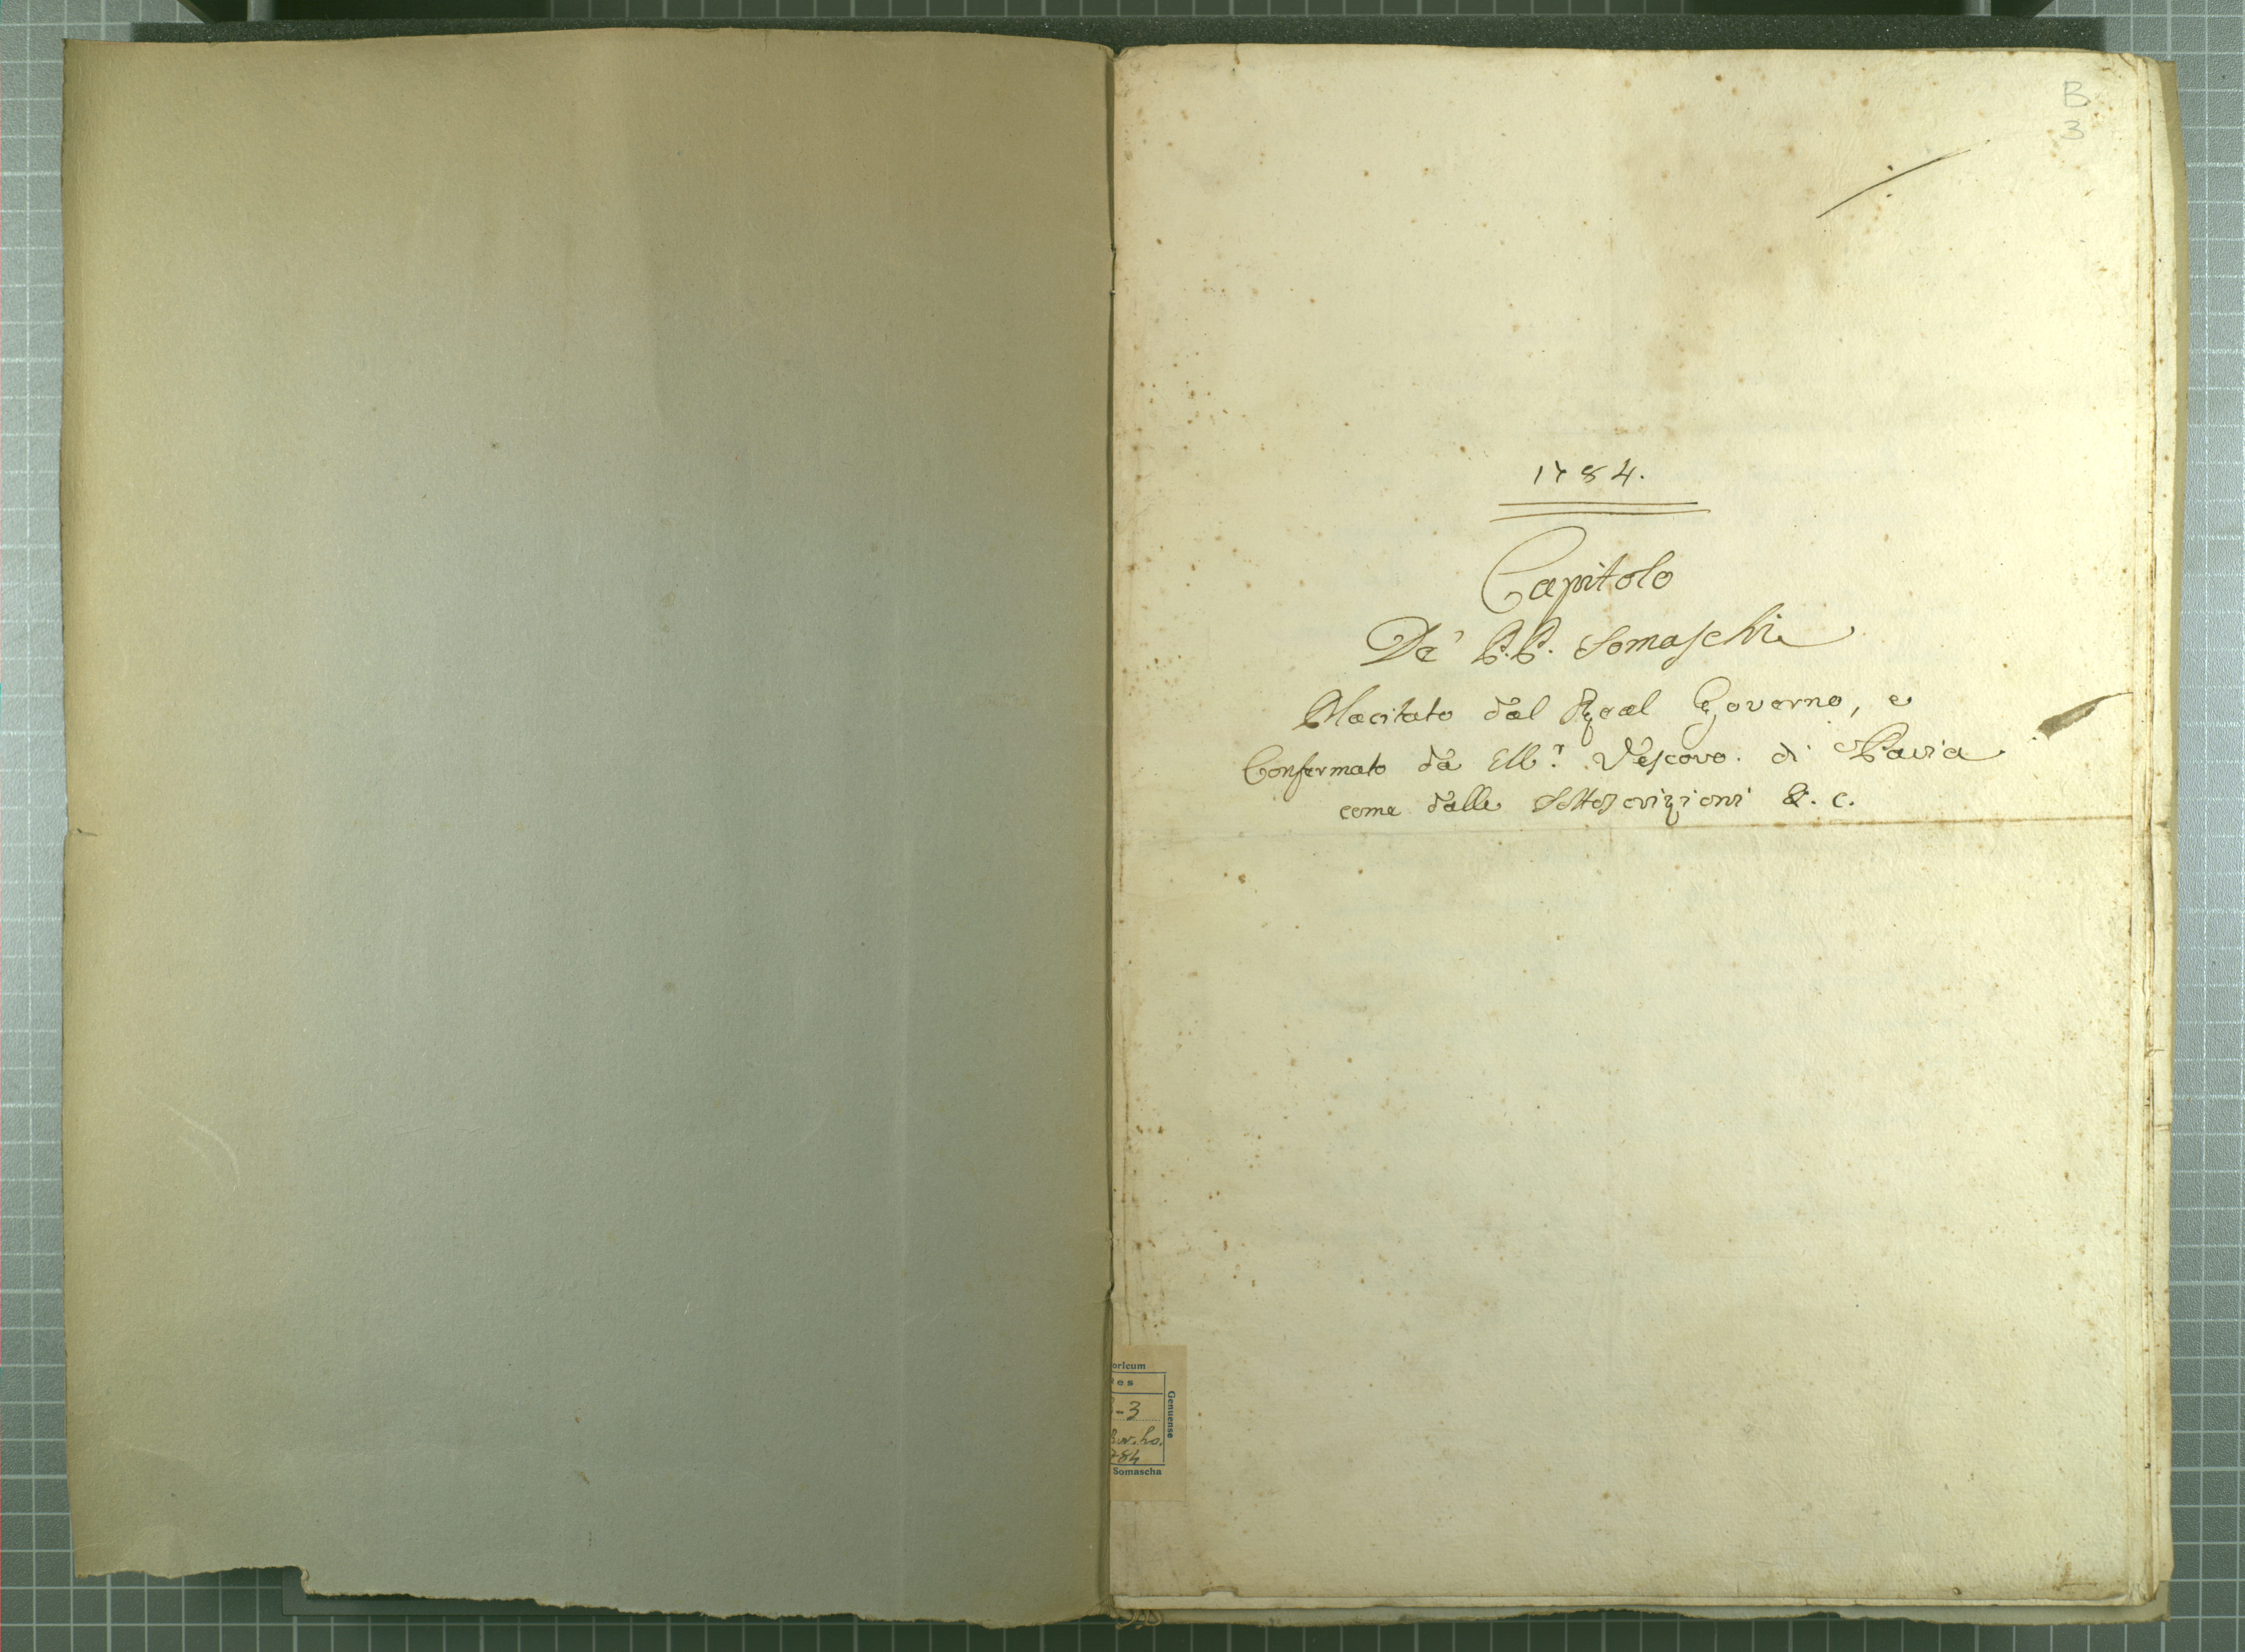 B
3
1784.
Capitolo
De' P.P. Somaschi
Placitato dal Real Governo, e
Confermato da Mr. Vescovo di Pavia
come dalle Sottoscrizioni &. c.
oricum
es
-3
784
Somascha
Genuense